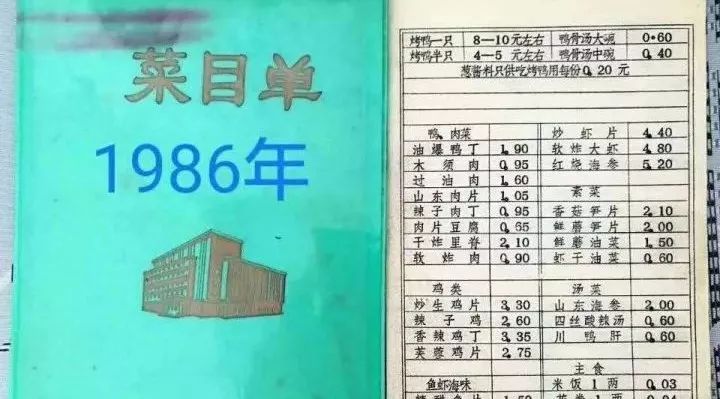 菜目单
1986年
烤鸭一只 8—10元左右 鸭骨汤大碗 0.60
烤鸭半只 4—5元左右 鸭骨汤中碗 0.40
葱酱料只供吃烤鸭用每份0.20元
鸭、肉菜 炒虾片 4.40
油爆鸭丁 1.90 软炸大虾 4.80
木须肉 0.95 红烧海参 5.20
过油肉 1.60
山东肉片 1.05 素菜
辣子肉丁 0.95 香菇笋片 2.10
肉片豆腐 0.65 鲜蘑笋片 2.00
干炸里脊 2.10 鲜蘑油菜 1.50
软炸肉 0.90 虾子油菜 0.60
鸡类 汤菜
炒生鸡片 3.30 山东海参 2.00
辣子鸡 2.60 四丝酸辣汤 0.60
香辣鸡丁 3.35 川鸭肝 0.60
芙蓉鸡片 2.75
主食
鱼虾海味 米饭1两 0.03